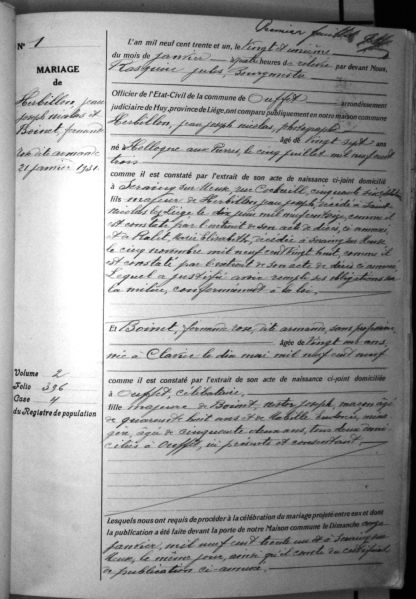 Premier feuillet
N° 1
MARIAGE
de
Herbillon, jean
joseph nicolas et
Boinet, fernande
rose dite armande
21 janvier 1931.
Volume 2
Folio 396
Case 4
du Registre de population
L'an mil neuf cent trente et un, le vingt et unième
du mois de janvier à quatre heures de relevée par devant Nous,
Rasquin jules, bourgmestre
Officier de l'Etat-Civil de la commune de Ouffet arrondissement
judiciaire de Huy, province de Liége, ont comparu publiquement en notre maison commune
Herbillon, jean joseph nicolas, photographe
âgé de vingt sept ans
né à Hollogne aux Pierres, le cinq juillet mil neuf cent
trois
comme il est constaté par l'extrait de son acte de naissance ci-joint domicilié
à Seraing sur Meuse, rue Cockerill, cinquante
fils majeur de Herbillon jean joseph, décédé à Saint
Nicolas lez Liége le dix juin mil neuf cent onze, comme il
est constaté par l'extrait de son acte de décès, ci annexé,
et de Rialet, Marie Elisabeth, décédée à Seraing sur Meuse,
le cinq novembre mil neuf cent vingt huit, comme il
est constaté par l'extrait de son acte de décès ci annexé.
Lequel a justifié avoir rempli ses obligations sur
la milice, conformément à la loi.
Et Boinet, fernande rose, dite armande, sans profession,
âgée de vingt un ans,
née à Clavier le dix mai mil neuf cent neuf
comme il est constaté par l'extrait de son acte de naissance ci-joint domiciliée
à Ouffet, célibataire,
fille majeure de Boinet, nestor joseph, maçon âgé
de quarante huit ans et de
âgée de cinquante deux ans, tous deux domi
ciliés à Ouffet, ici présents et consentant.
Lesquels nous ont requis de procéder à la célébration du mariage projeté entre eux et dont
la publication a été faite devant la porte de notre Maison commune le Dimanche onze
janvier, mil neuf cent trente un et à Seraing sur
Meuse, le même jour, ainsi qu'il conste du certificat
de publication ci-annexé.